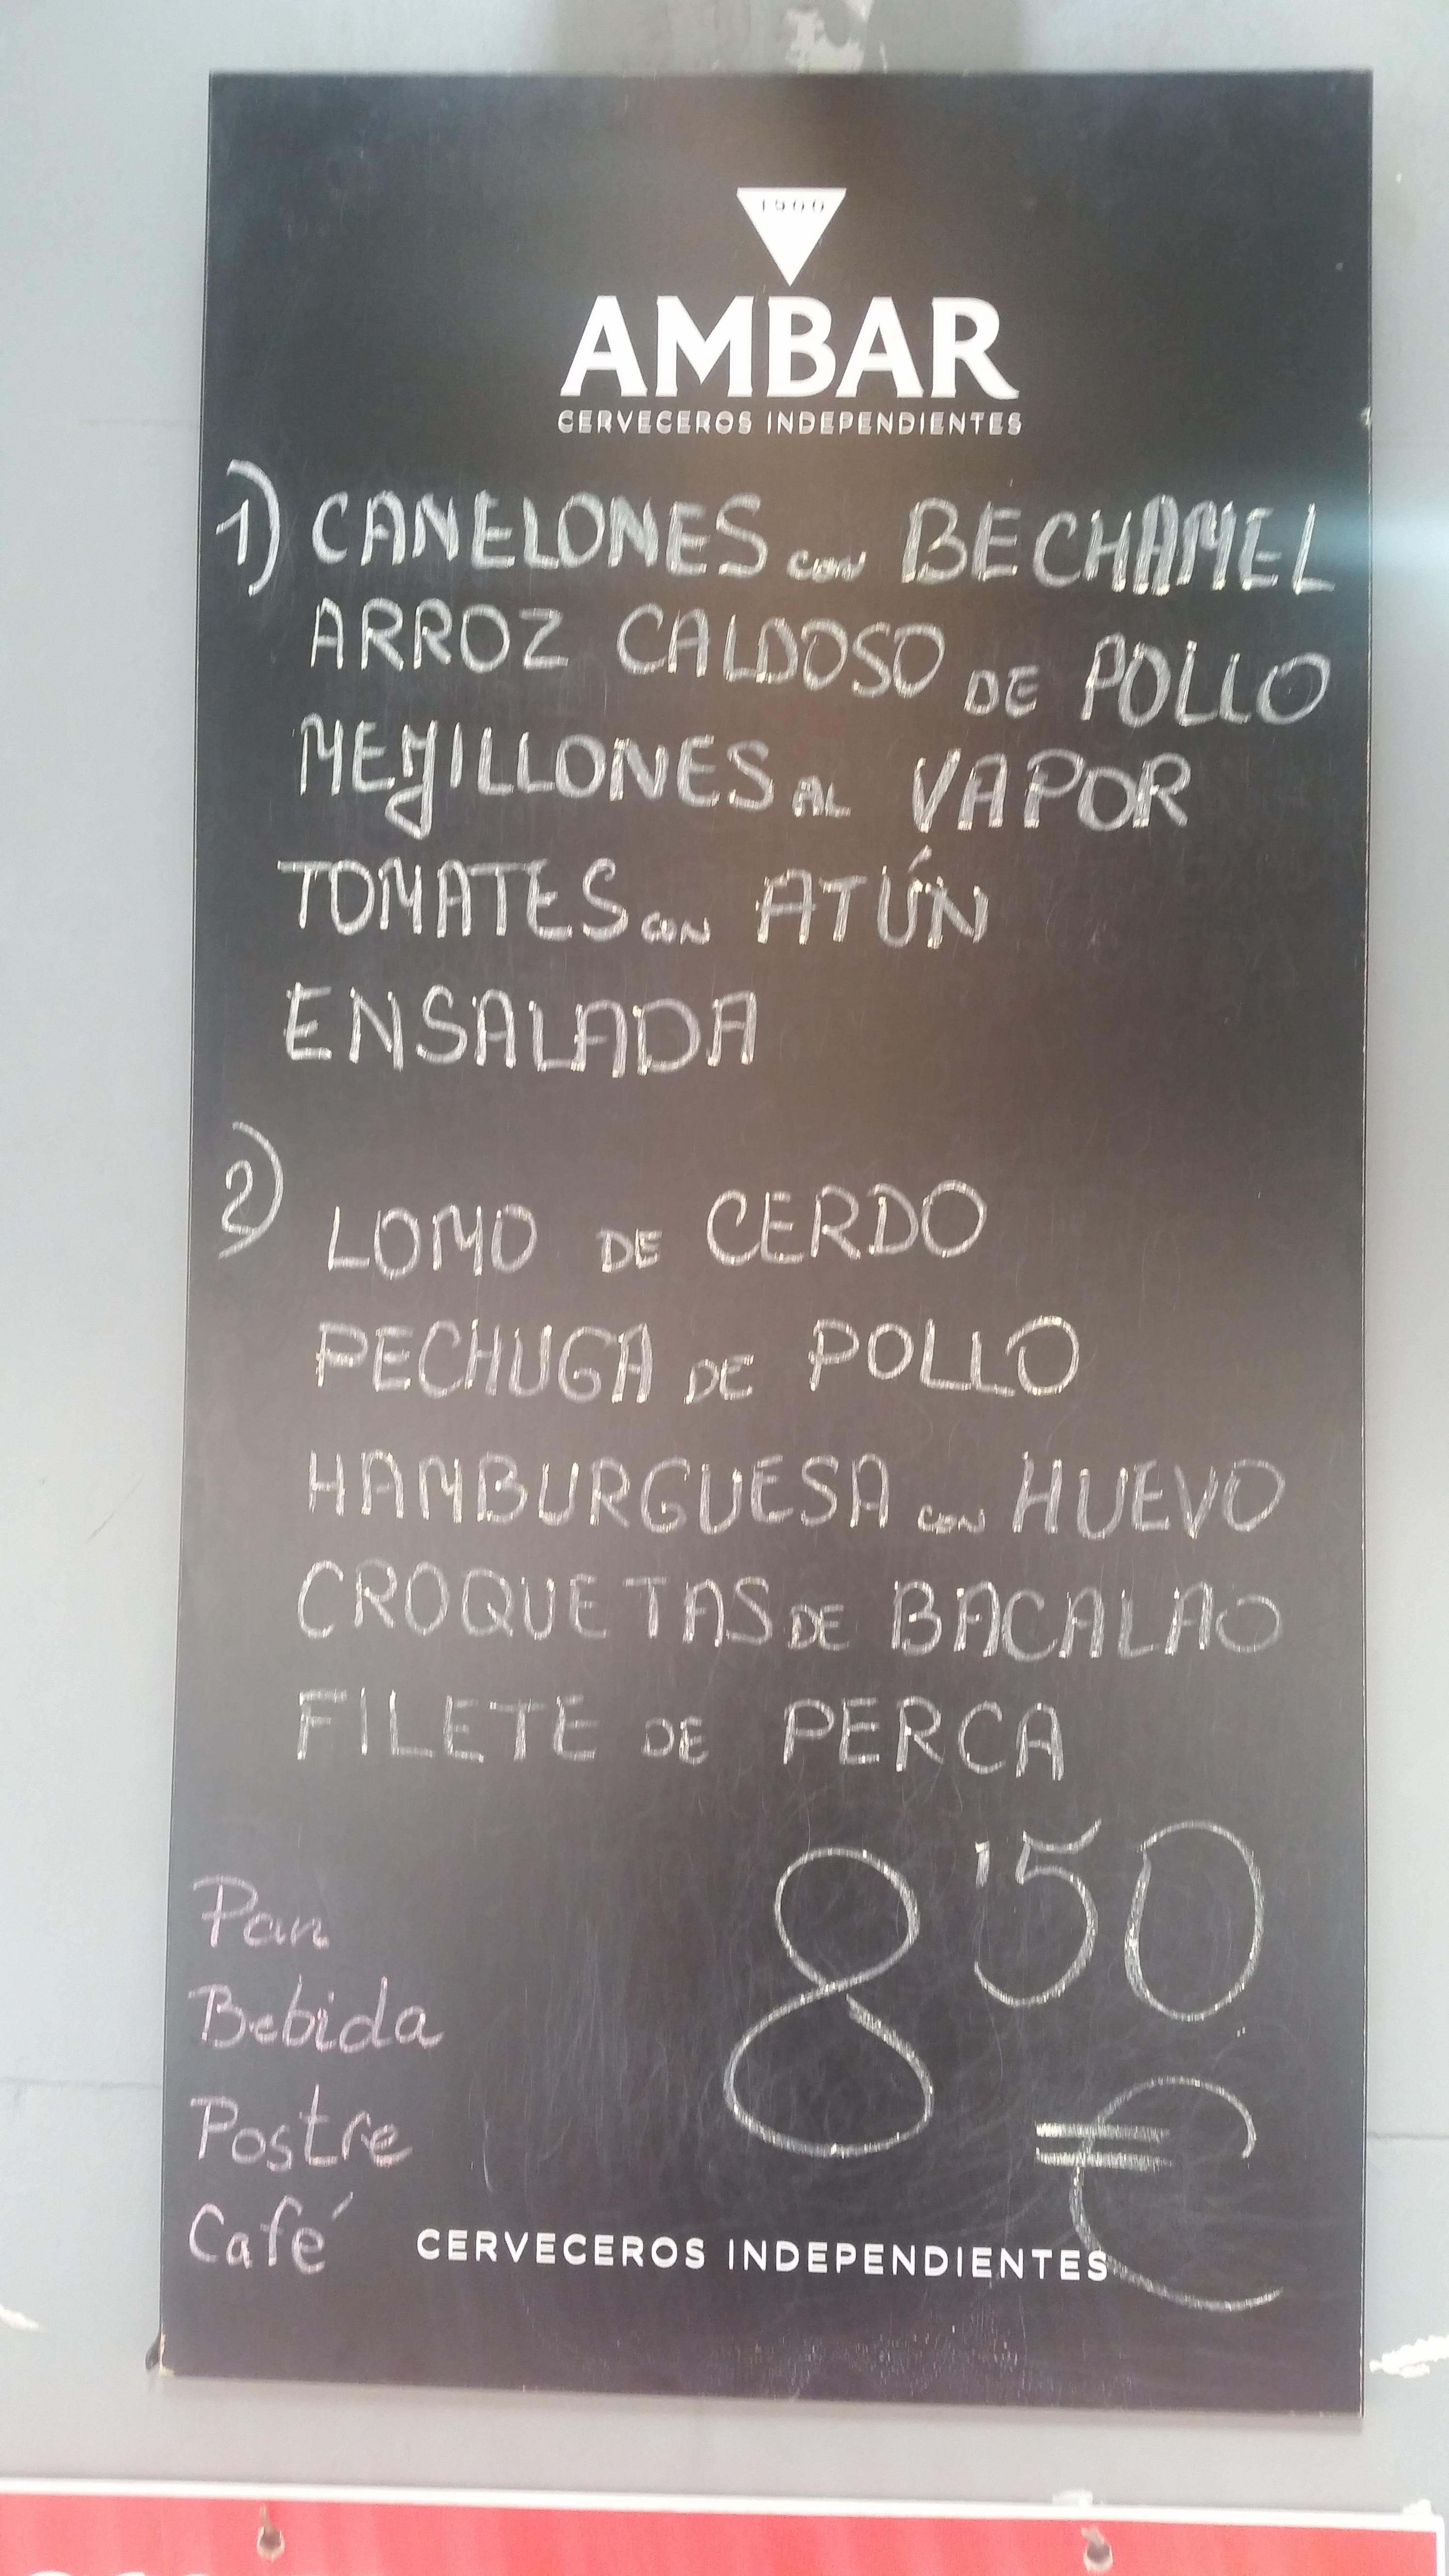 1900
AMBAR
CERVECEROS INDEPENDIENTES
1) CANELONES con BECHAMEL
ARROZ CALDOSO DE POLLO
MEJILLONES AL VAPOR
TOMATES CON ATÚN
ENSALADA
2) LOMO DE CERDO
PECHUGA DE POLLO
HAMBURGUESA CON HUEVO
CROQUETAS DE BACALAO
FILETE DE PERCA
8'50 €
Pan
Bebida
Postre
Café
CERVECEROS INDEPENDIENTES